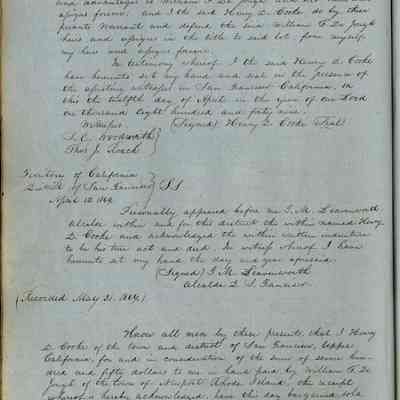 and advantages to William T. De Jongh and his heirs and
assigns forever. And I the said Henry D. Cooke do by these
presents Warrant and defend the said William T. De Jongh
heirs and assigns in the title to said lot from myself
my heirs and assigns forever.
In testimony whereof I the said Henry D. Cooke
have hereunto set my hand and seal in the presence of
the witnesses in San Francisco California, on
this the twelfth day of April in the year of our Lord
one thousand eight hundred and forty nine.
Witnesses (Signed) Henry D. Cooke (Seal)
S. E. Woodworth
Thos J. Roach
Territory of California
District of San Francisco } S.S.
April 12. 1849.
Personally appeared before me T. M. Leavenworth
Alcalde within and for this district the within named Henry
D. Cooke and acknowledged the within written indenture
to be his true act and deed. In witness whereof I have
hereunto set my hand the day and year aforesaid.
(Signed) T. M. Leavenworth
Alcalde D. S. Francisco.
(Recorded May 21. 1849.)
Know all men by these presents, that I Henry
D. Cooke of the town and district of San Francisco, Upper
California, for and in consideration of the sum of seven hun-
dred and fifty dollars to me in hand paid by William T. De
Jongh of the town of Newport Rhode Island, the receipt
whereof is hereby acknowledged, have this day bargained sold